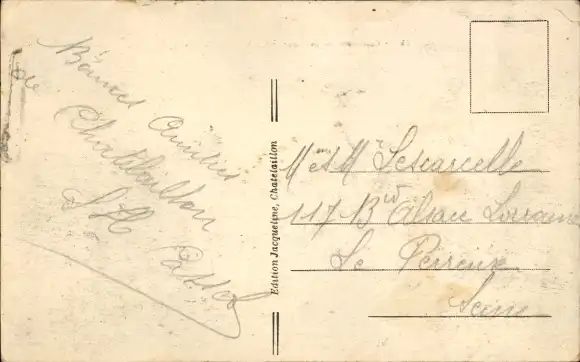 Bonnes Amitiés
de
Chatelaillon
Edition Jacqueline, Chatelaillon
M et Mme Lescarcelle
117 Bd Alsace Lorraine
Le Perreux
Seine